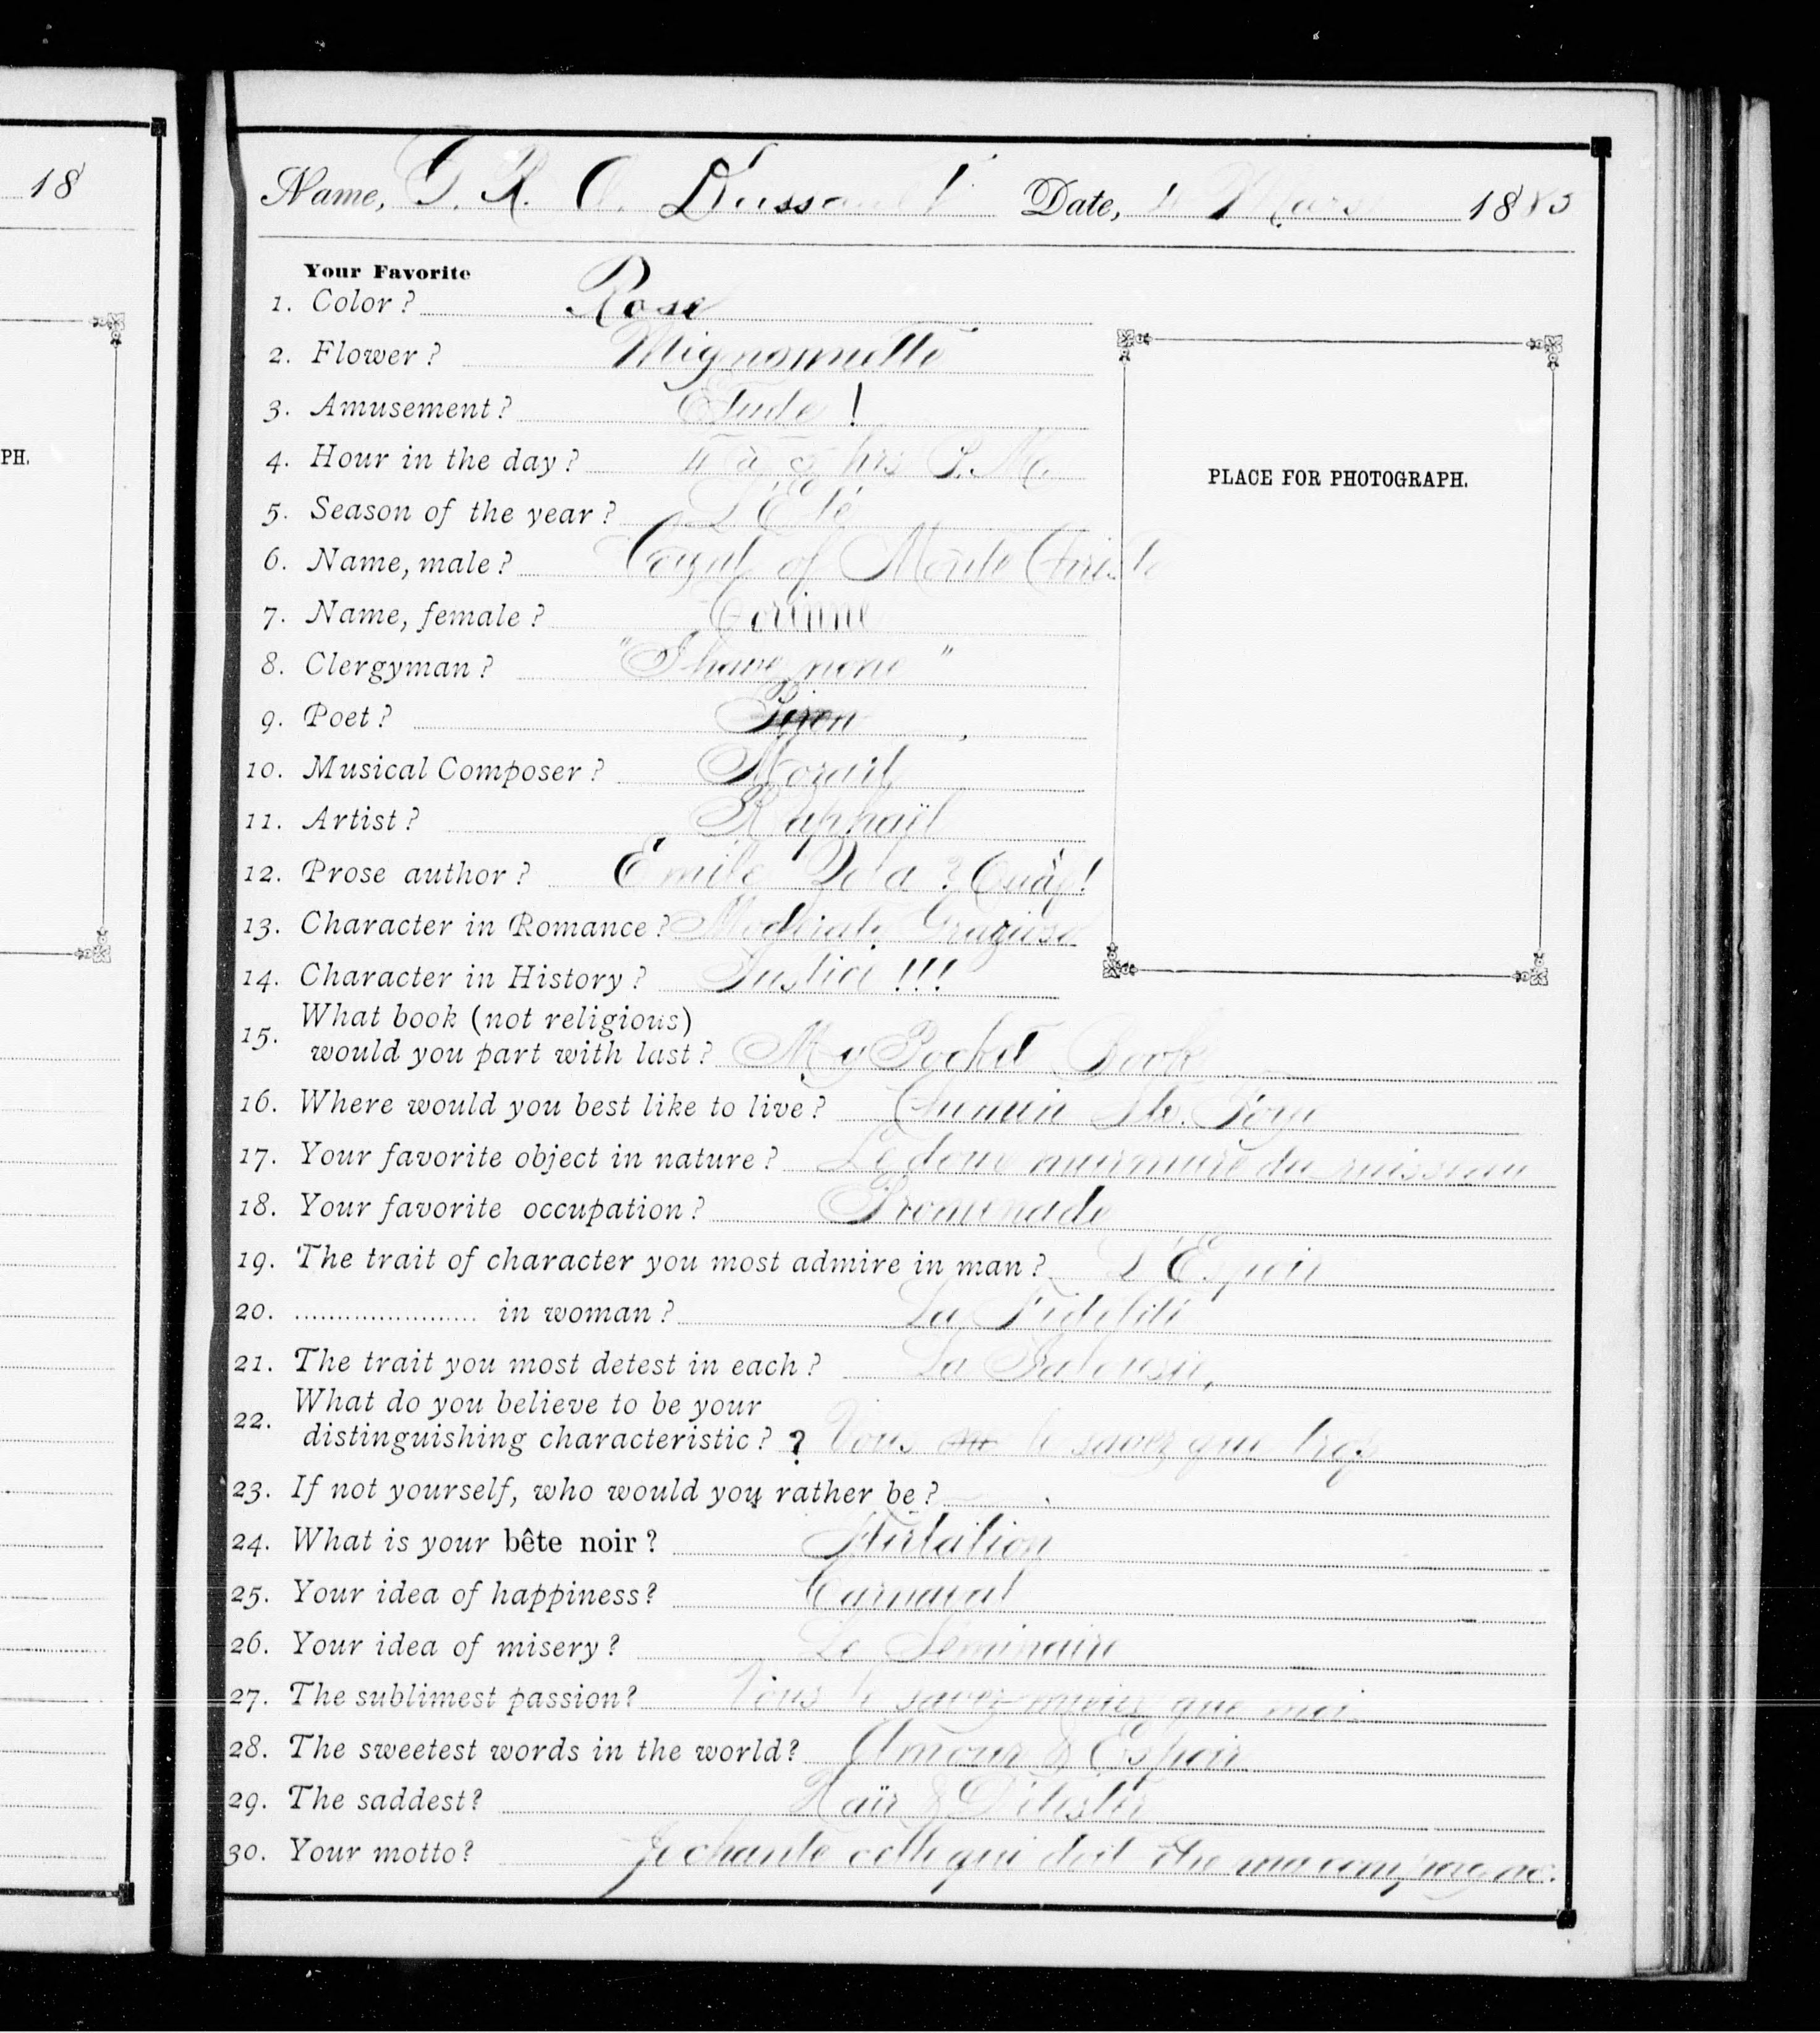 18
PH.
Name, G. R. O. Dussault Date, 4 Mars 1883
Your Favorite
1. Color? Rose
2. Flower? Mignonnette
3. Amusement? Etude!
4. Hour in the day? 4 à 5 hrs P.M.
5. Season of the year? L'Eté
6. Name, male? Count of Monte Christo
7. Name, female? Corinne
8. Clergyman? "I have none"
9. Poet? Piron
10. Musical Composer? Mozart
11. Artist? Raphaël
12. Prose author? Emile Zola?
13. Character in Romance? Moderato Grazioso
14. Character in History? Justice!!!
15. What book (not religious)
would you part with last? My Pocket Book
16. Where would you best like to live? Chemin Ste. Foye
17. Your favorite object in nature? Le doux murmure du ruisseau
18. Your favorite occupation? Promenade
19. The trait of character you most admire in man? L'Espoir
20. ...................... in woman? La Fidélité
21. The trait you most detest in each? La Jalousie,
22. What do you believe to be your
distinguishing characteristic? ? Vous le savez que trop
23. If not yourself, who would you rather be?
24. What is your bête noir? Flirtation
25. Your idea of happiness? Carnaval
26. Your idea of misery? Le Séminaire
27. The sublimest passion? Vous le savez mieux que moi
28. The sweetest words in the world? Amour & Espoir
29. The saddest? Haïr & Détester
30. Your motto? Je chante celle qui doit être ma compagne.
PLACE FOR PHOTOGRAPH.